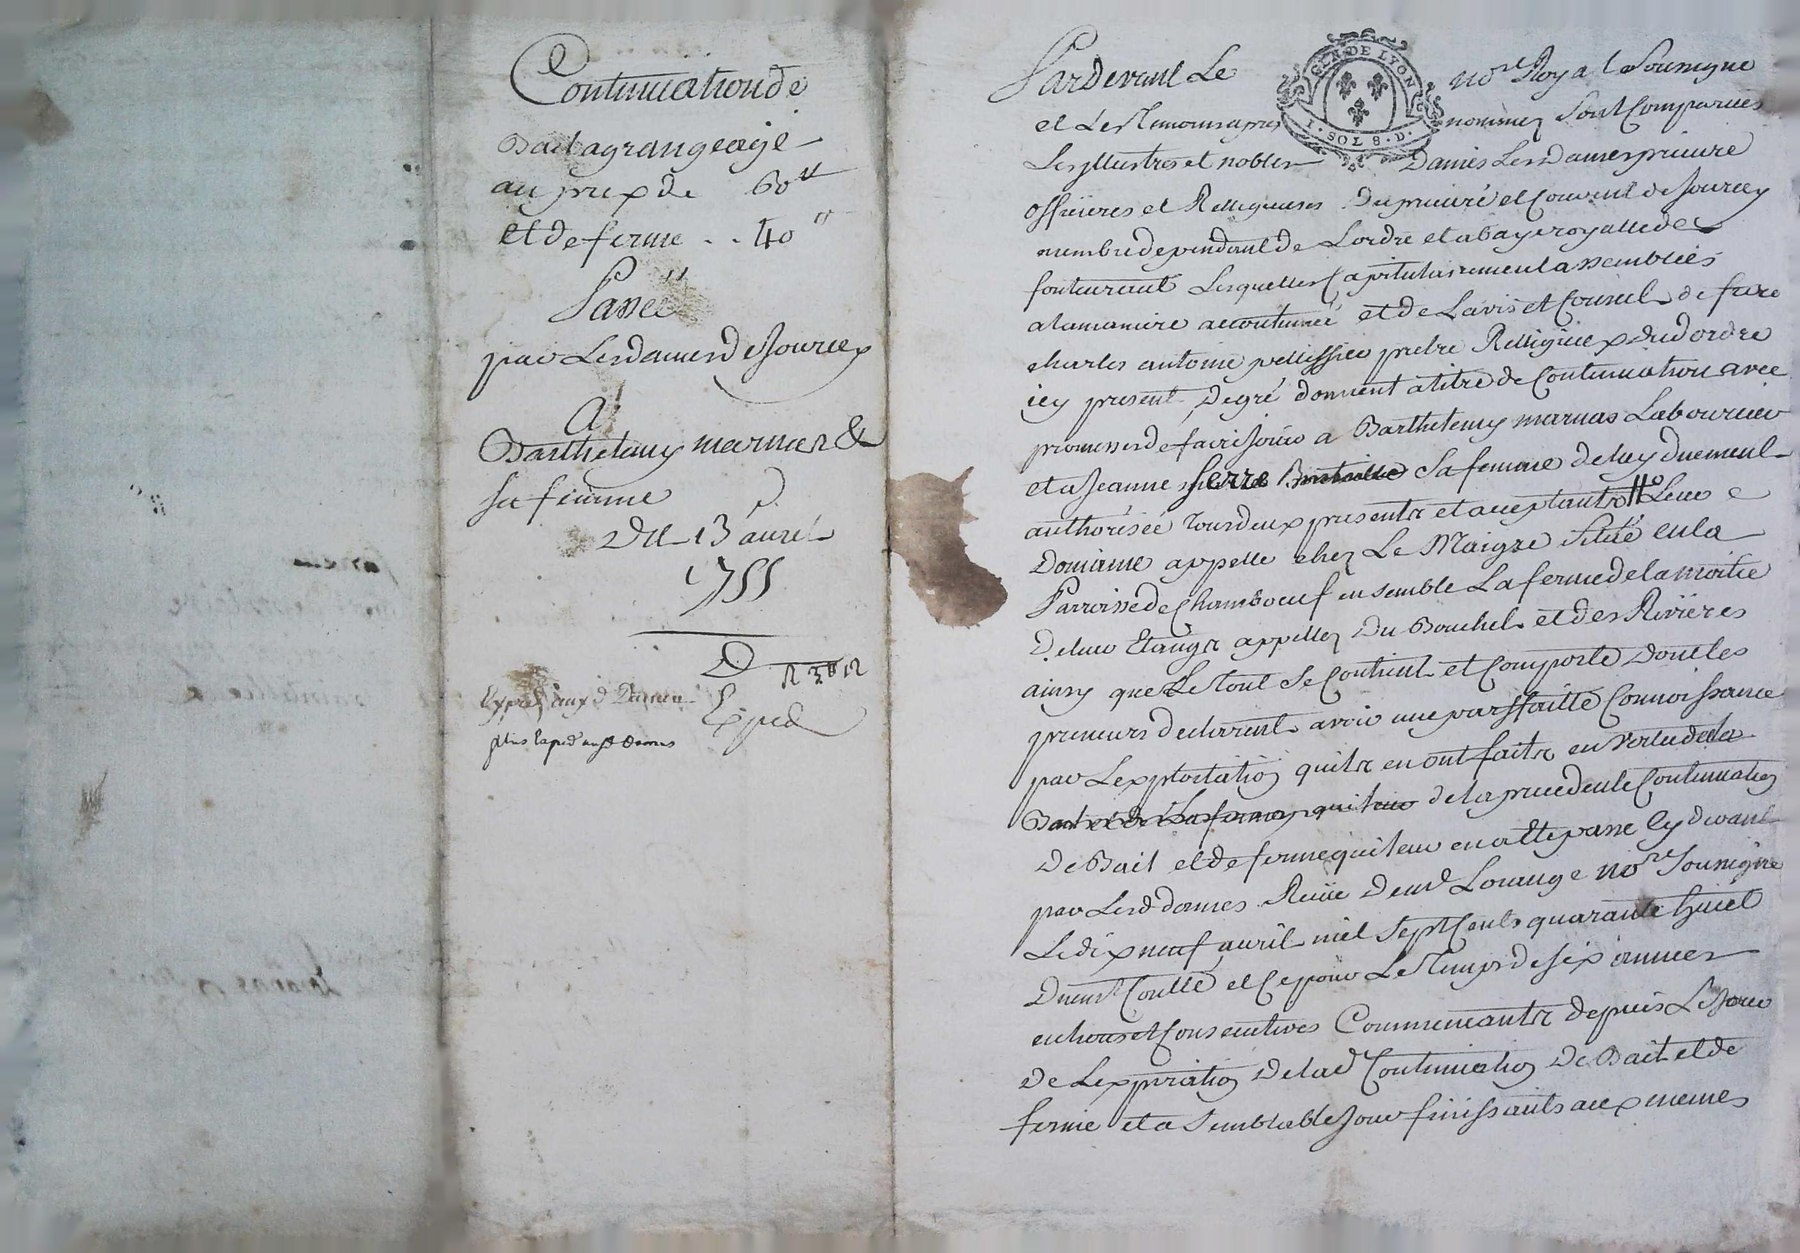 Continuation de
Bail a grangeage
au prix de 60tt
et de ferme . . 40tt
Passé
par Lesd dames de Jourcey
A
Barthelemy marnas &
sa femme
Du 13 avril
1755
Exped
Pardevant Le nore Royal Soussigné
et Les Temoins apres nommez Sont Comparües
Les jllustres et nobles Dames Lesd dames prieure
offisieres et Relligieuses du prieuré et Couvent de Jourcey
membre dependant de Lordre et abaye royalle de
fontevraut Lesquelles Capitulairement assemblées
a la maniere accoutumée et de Lavis et Conseil de frere
charles antoine pellissier prêtre Relligieux dud ordre
icy present, De gré donnent a titre de Continuation avec
promesses de faire Jouir a Barthelemy marnas Laboureur
et a Jeanne Serre Sa femme de luy duement
authorisée Tous deux presents et acceptants Leur
Domaine appellé chez Le Maigre Situé en la
Parroisse de Chamboeuf ensemble La ferme de la moitié
De leur Etangs appellez Du Bouchet et des Rivières
ainsy que Le tout Se Contient et Comporte Dont les
preneurs declarent avoir une parffaitte Connoissance
par Lexploitation quils en ont faits en Vertu de la
de la precedente Continuation
De Bail et de ferme qui leur en a etté passé Cy devant
par Lesd dames Reçüe Dud Lorange nore Soussigné
Le dix neuf avril mil Sept Cents quarante huict
Duemt Conllé et Ce pour Le Temps de six années
entieres et Consecutives Commencants depuis Le Jour
de Lexpiration De lad Continuation De Bail et de
ferme et a Semblable Jour finissants aux memes